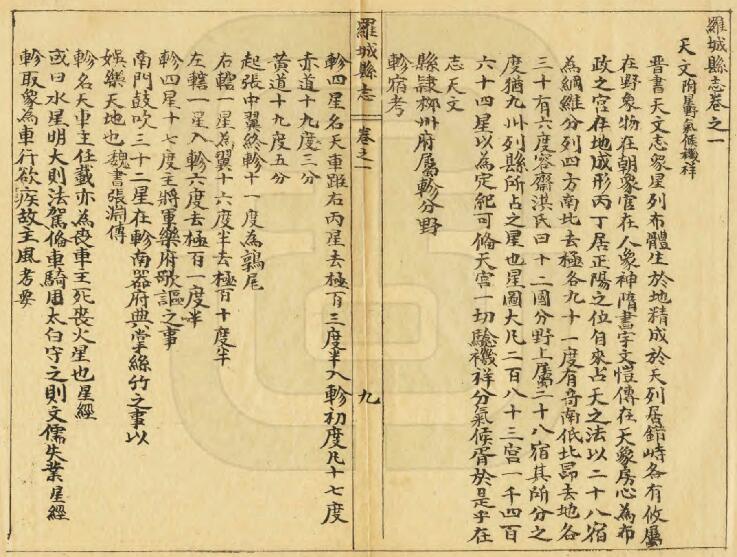 羅城縣志卷之一
天文 附晷氣候禨祥
晋書天文志衆星列布體生於地精成於天列居錯峙各有攸屬
在野象物在朝象官在人象神隋書宇文愷傳在天象房心為布
政之宮在地成形丙丁居正陽之位自來占天之法以二十八宿
為綱維分列四方南北去極各九十一度有奇南低北昂去地各
三十有六度容齋洪氏曰十二國分野上屬二十八宿其所分之
度猶九州列縣所占之星也星圖大凡二百八十三宮一千四百
六十四星以為定紀可脩天宮一切騐禨祥分氣候胥於是乎在
志天文
縣隸柳州府屬軫分野
軫宿考
羅城縣志
卷之一
九
軫四星名天車距右丙星去極百三度半入軫初度凡十七度
赤道十九度三分
黃道十九度五分
起張中翼終軫十一度為鶉尾
右轄一星為翼十六度半去極百十度半
左轄一星入軫六度去極百一度半
軫四星十七度主將軍樂府歌謳之事
南門鼓吹三十二星在軫南器府典掌絲竹之事以
娛樂天地也 魏書張淵傳
軫名天車主任載亦為喪車主死喪火星也 星經
或曰水星明大則法駕脩車騎用太白守之則文儒失業 星經
軫取象為車行欲疾故主風 考要